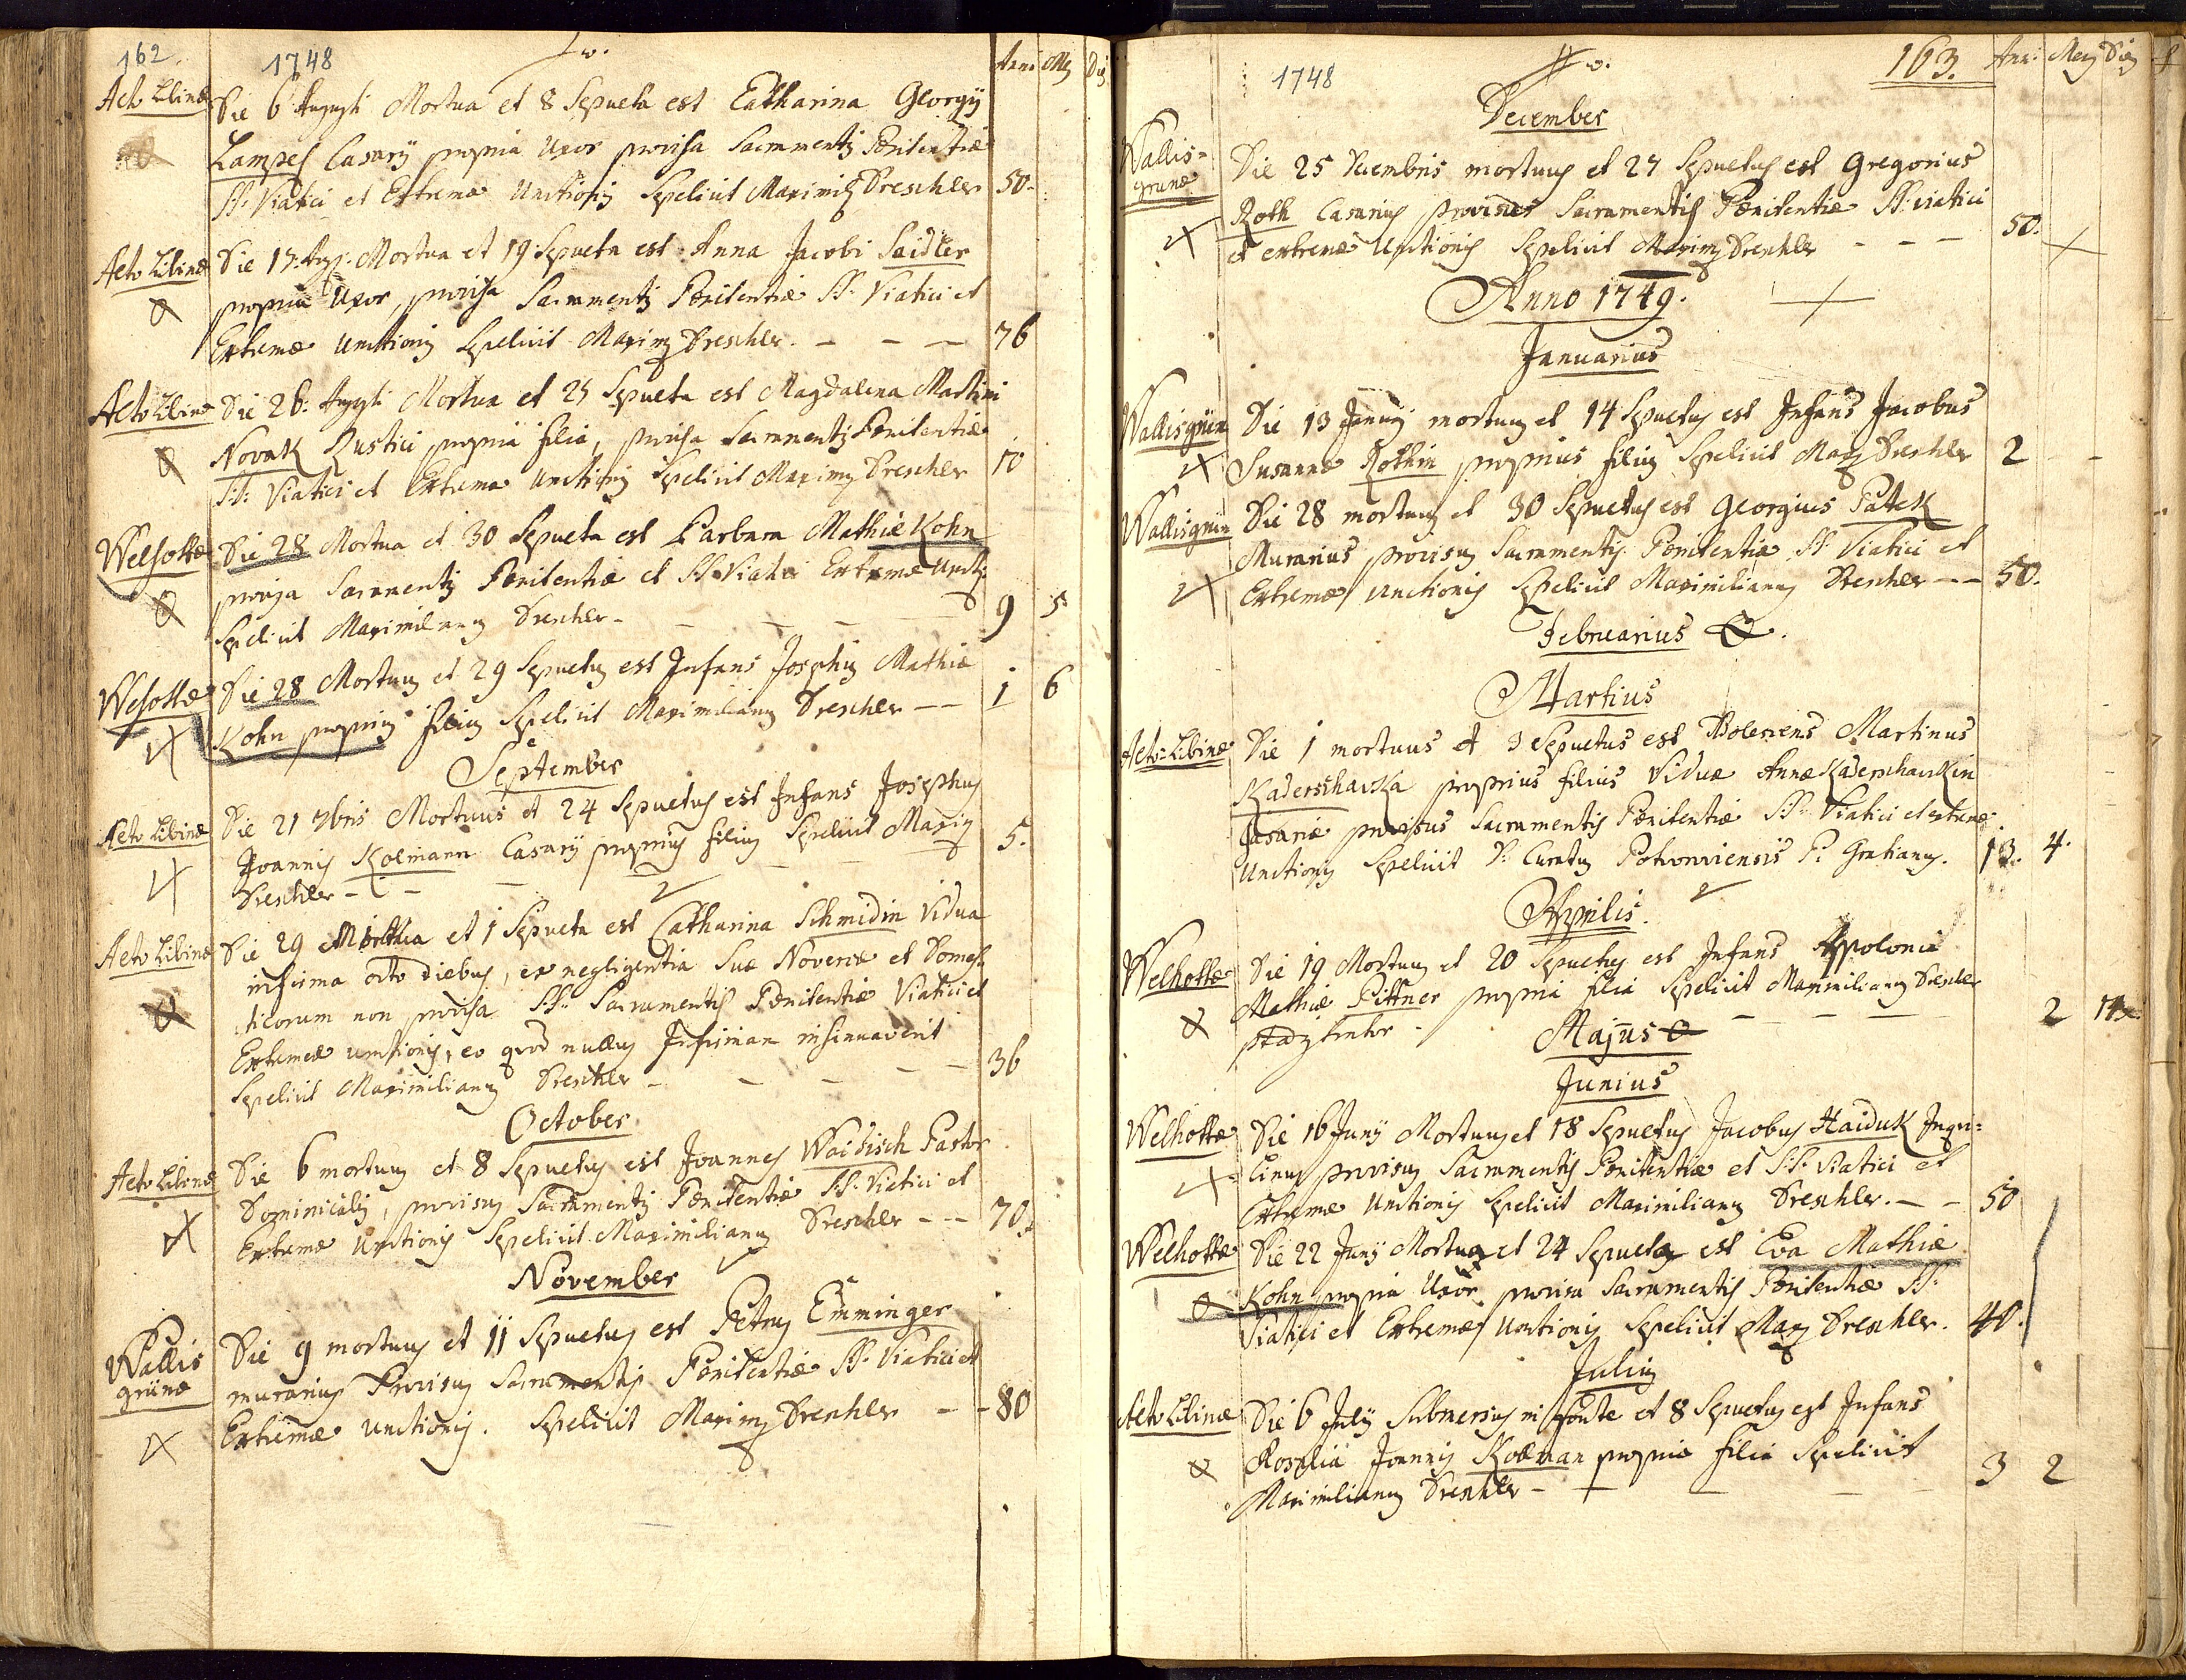 162. 1748 Anni Mēs Dies
Acto Libinæ Die 6 Augusti Mortua et 8 Sepulta est Catharina Georgÿ
Lampel Casarÿ propria Uxor provisa Sacramentis Pœnitentiæ
SS. Viatici et Extremæ Unctionis Sepelivit Maximil Dreschler 50.
Acto Libinæ Die 17. Aug: Mortua et 19 Sepulta est Anna Jacobi Saidler
propria Uxor, provisa Sacramentis Pœnitentiæ SS. Viatici et
Extremæ Unctionis Sepelivit Maximus Dreschler. - - - 76
Acto Libinæ Die 26. Augusti Mortua et 27 Sepulta est Magdalena Martini
Novak Rustici propria filia, provisa Sacramentis Pœnitentiæ
SS: Viatici et Extremæ Unctionis Sepelivit Maximus Dreschler 10
Welhottæ Die 28 Mortua et 30 Sepulta est Barbara Mathiæ Kohn
provisa Sacramentis Pœnitentiæ et SS Viatici Extremæ Unctis
Sepelivit Maximilianus Dreschler - - - - 9 5
Welhottæ Die 28 Mortuus et 29 Sepultus est Infans Josephus Mathiæ
Kohn proprius filius Sepelivit Maximilianus Dreschler -- 1 6
September
Acto Libinæ Die 21 7bris Mortuus et 24 Sepultus est Infans Josephus
Joannis Kolmann Casarÿ proprius filius Sepelivit Maxim 5.
Dreschler - - - -
Acto Libinæ Die 29 Mortua et 1 Sepulta est Catharina Schmidin Vidua
infirma octo diebus, ex negligentia Suæ Novercæ et Domes
ticorum non provisa SS. Sacramentis Pœnitentiæ Viatici et
Extremæ unctionis, eo quod nullus Infirmam insinuaverit
Sepelivit Maximilianus Dreschler - - - - 36
October
Acto Libinæ Die 6 mortuus et 8 Sepultus est Joannes Waidisch Pastor
Dominicalis, provisus Sacramentis Pœnitentiæ SS. Viatici et
Extremæ Unctionis Sepelivit Maximilianus Dreschler --- 70.
November
Wallis
grünæ Die 9 mortuus et 11 Sepultus est Petrus Emminger
murarius Provisus Sacramentis Pœnitentiæ SS. Viatici et
Extremæ Unctionis. Sepelivit Maximus Dreschler - - 80
1748 163. Ann: Mens Dies
December
Wallis=
grunæ Die 25 Decembris mortuus et 27 Sepultus est Gregorius
Roth Casarius provisus Sacramentis Pœnitentiæ SS: viatici
et extremæ Unctionis Sepelivit Maximus Dreschler - - - 50.
Anno 1749.
Januarius
Wallisgrün Die 13 Januarÿ mortuus et 14 Sepultus est Infans Jacobus
Susannæ Rothin proprius filius Sepelivit Max Dreschler 2 - -
Wallisgrün Die 28 mortuus et 30 Sepultus est Georgius Patek
Murarius provisus Sacramentis Pœnitentiæ SS. Viatici et
Extremæ Unctionis Sepelivit Maximilianus Dreschler --- 50.
Februarius
Martius
Acto=Libinæ Die 1 mortuus et 3 Sepultus est Adolescens Martinus
Kaderschavka proprius filius Viduæ Annæ Kaderschavkin
Casariæ provisus Sacramentis Pœnitentiæ SS. Viatici et extremæ
Unctionis Sepelivit D: Curatus P: Gratianus. 13. 4.
Aprilis.
Welhottæ Die 19 Mortuus et 20 Sepultus est Infans Appolonia
Mathiæ Pittner propria filia Sepelivit Maximilianus Dreschler
- - - - 2 14
Majus
Junius
Welhottæ Die 16 Junÿ Mortuus et 18 Sepultus Jacobus Haiduk Inqui=
linus provisus Sacramentis Pœnitentiæ et SS. Viatici et
Extremæ Unctionis Sepelivit Maximilianus Dreschler. - - 50
Welhottæ Die 22 Junÿ Mortua et 24 Sepulta est Eva Mathiæ
Kohn propria Uxor provisa Sacramentis Pœnitentiæ SS.
Viatici et Extremæ Unctionis Sepelivit Max Dreschler. 40.
Julius
Acto Libinæ Die 6 Julÿ Submersus in fonte et 8 Sepultus est Infans
Rosalia Joannis Kolman propria filia Sepelivit
Maximilianus Dreschler - - - - - 3 2